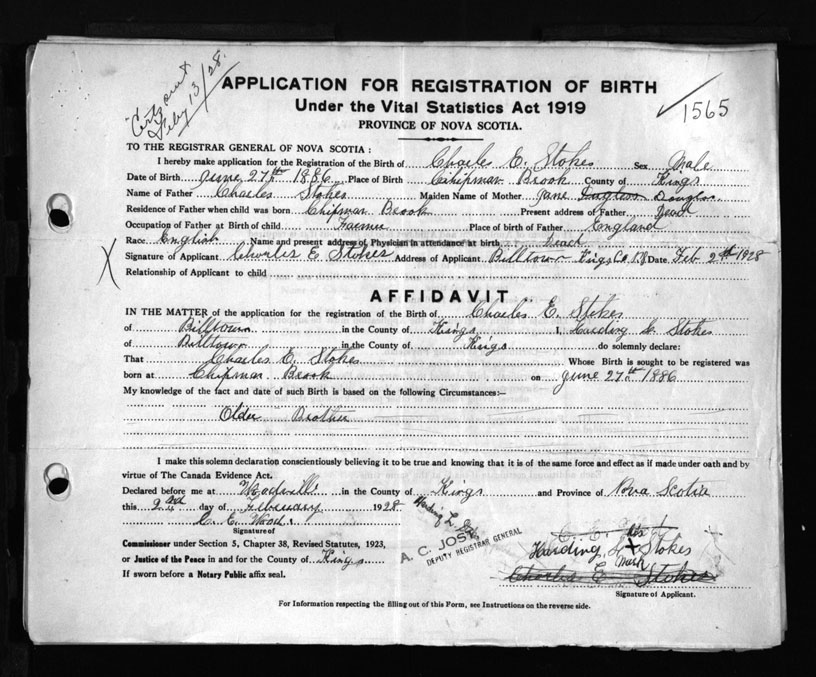 "Cert sent
Feby 13/28.
APPLICATION FOR REGISTRATION OF BIRTH
Under the Vital Statistics Act 1919
1565
PROVINCE OF NOVA SCOTIA.
TO THE REGISTRAR GENERAL OF NOVA SCOTIA :
I hereby make application for the Registration of the Birth of Charles E. Stokes Sex Male
Date of Birth June 27th 1886 Place of Birth Chipman Brook County of Kings
Name of Father Charles Stokes Maiden Name of Mother Jane Douglas
Residence of Father when child was born Chipman Brook Present address of Father Dead
Occupation of Father at Birth of child Place of birth of Father England
Race English Name and present address of Physician in attendance at birth dead
Signature of Applicant Charles E Stokes Address of Applicant Billtown Kings Co. N.S Date Feb 2nd 1928
Relationship of Applicant to child
AFFIDAVIT
IN THE MATTER of the application for the registration of the Birth of Charles E. Stokes
of Billtown in the County of Kings I, Harding L. Stokes
of Billtown in the County of Kings do solemnly declare:
That Charles E. Stokes Whose Birth is sought to be registered was
born at Chipman Brook on June 27th 1886
My knowledge of the fact and date of such Birth is based on the following Circumstances:—
Older Brother
I make this solemn declaration conscientiously believing it to be true and knowing that it is of the same force and effect as if made under oath and by
virtue of The Canada Evidence Act.
Declared before me at Woodville in the County of Kings and Province of Nova Scotia
this 2nd day of February 1928
C. E. Wood
Signature of
Commissioner under Section 5, Chapter 38, Revised Statutes, 1923,
or Justice of the Peace in and for the County of Kings
If sworn before a Notary Public affix seal.
A. C. JOST
DEPUTY REGISTRAR GENERAL
his
Harding L. X Stokes
mark
Charles E. Stokes
Signature of Applicant.
For Information respecting the filling out of this Form, see Instructions on the reverse side.